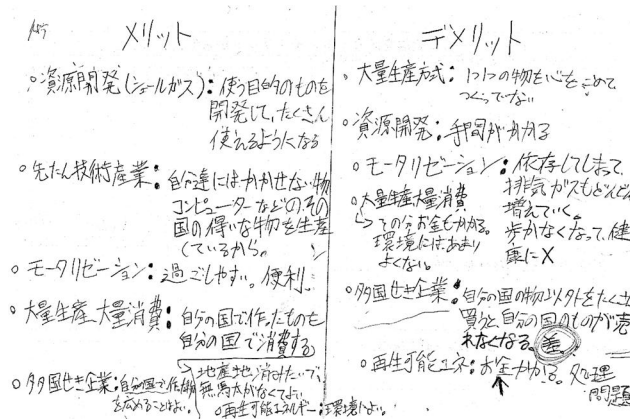 メリット
○資源開発(シェールガス):使う目的のものを
開発して、たくさん
使えるようになる
○先たん技術産業:自分達にはかかせない物
コンピューターなどの、その
国の得いな物を生産
しているから。
○モータリゼーション:過ごしやすい。便利
○大量生産、大量消費:自分の国で作ったものを
自分の国で消費する
地産地消みたいで、
無駄がなくてよい
○多国せき企業:自分国で作物
を広めることはよい。
○再生可能エネルギー:環境によい。
デメリット
○大量生産方式:1つ1つの物を心をこめて
つくってない
○資源開発:手間がかかる
○モータリゼーション:依存してしまって、
排気ガスもどんどん
増えていく。
歩かなくなって、健
康に×
○大量生産大量消費
その分お金もかかる。
環境にはあまり
よくない。
○多国せき企業:自分の国の物以外をたくさん
買うと、自分の国のものが売
れなくなる。差
○再生可能エネ:お金かかる。処理
問題